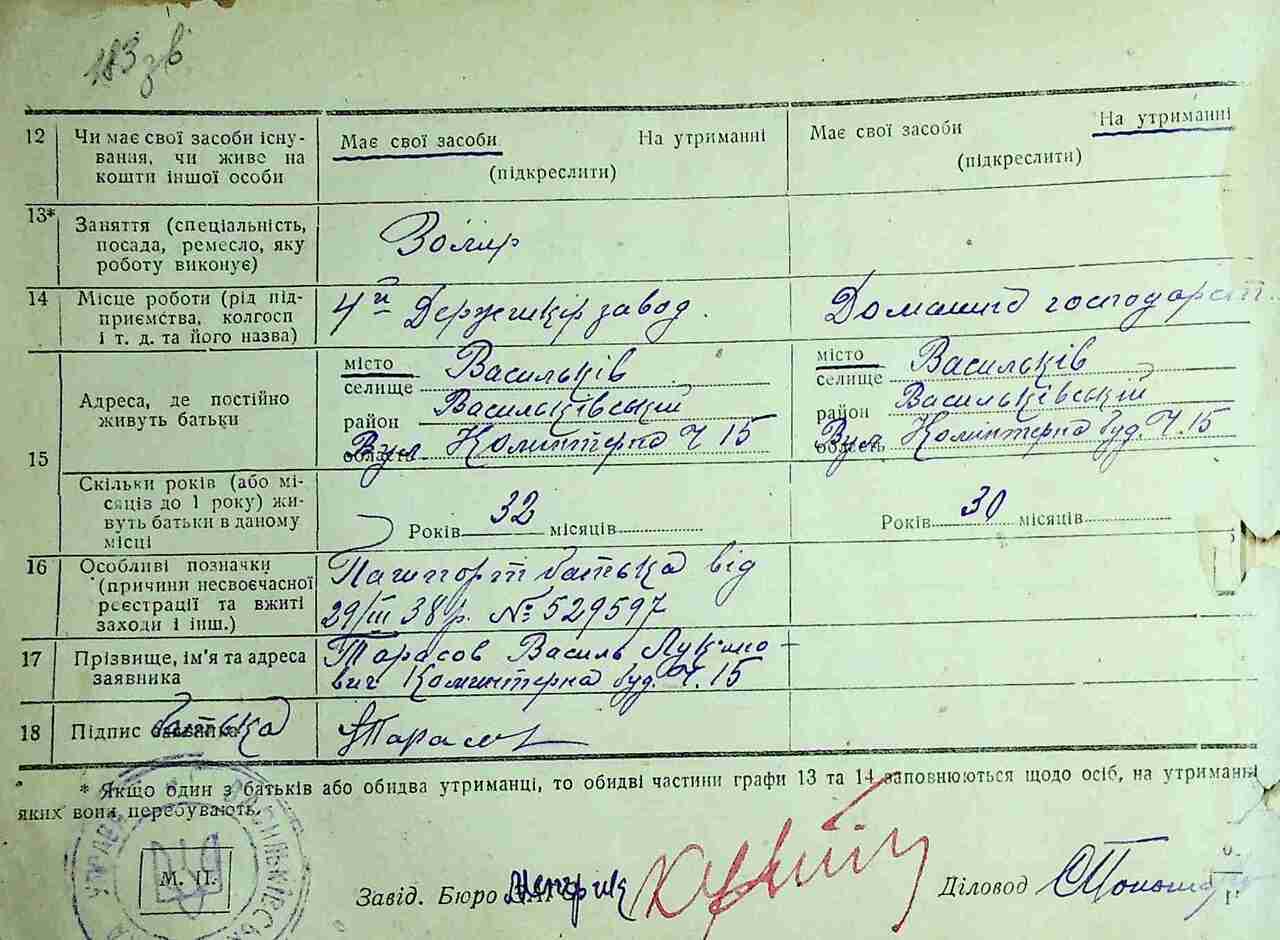 183 зв
12
Чи має свої засоби існу-
вання, чи живе на
кошти іншої особи
Має свої засоби На утриманні
(підкреслити)
Має свої засоби На утриманні
(підкреслити)
13*
Заняття (спеціальність,
посада, ремесло, яку
роботу виконує)
14
Місце роботи (рід під-
приємства, колгосп
і т. д. та його назва)
4й Держшкірзавод.
Домашнє господарст
15
Адреса, де постійно
живуть батьки
місто Васильків
селище
район Васильківській
область Вул Комінтерна Ч 15
місто Васильків
селище
район Васильківській
область Вул Комінтерна буд. Ч. 15
Скільки років (або мі-
сяціз до 1 року) жи-
вуть батьки в даному
місці
Років 32 місяців
Років 30 місяців
16
Особливі позначки
(причини несвоєчасної
реєстрації та вжиті
заходи і інш.)
Пашпорт батька від
29/III 38 р. № 529597
17
Прізвище, ім'я та адреса
заявника
Тарасов Василь Лук'яно-
вич Комінтерна буд. Ч. 15
18
Підпис батька
Тарасов
* Якщо один з батьків або обидва утриманці, то обидві частини графи 13 та 14 заповнюються щодо осіб, на утриманні
яких вони перебувають.
М. П.
Завід. Бюро
Діловод